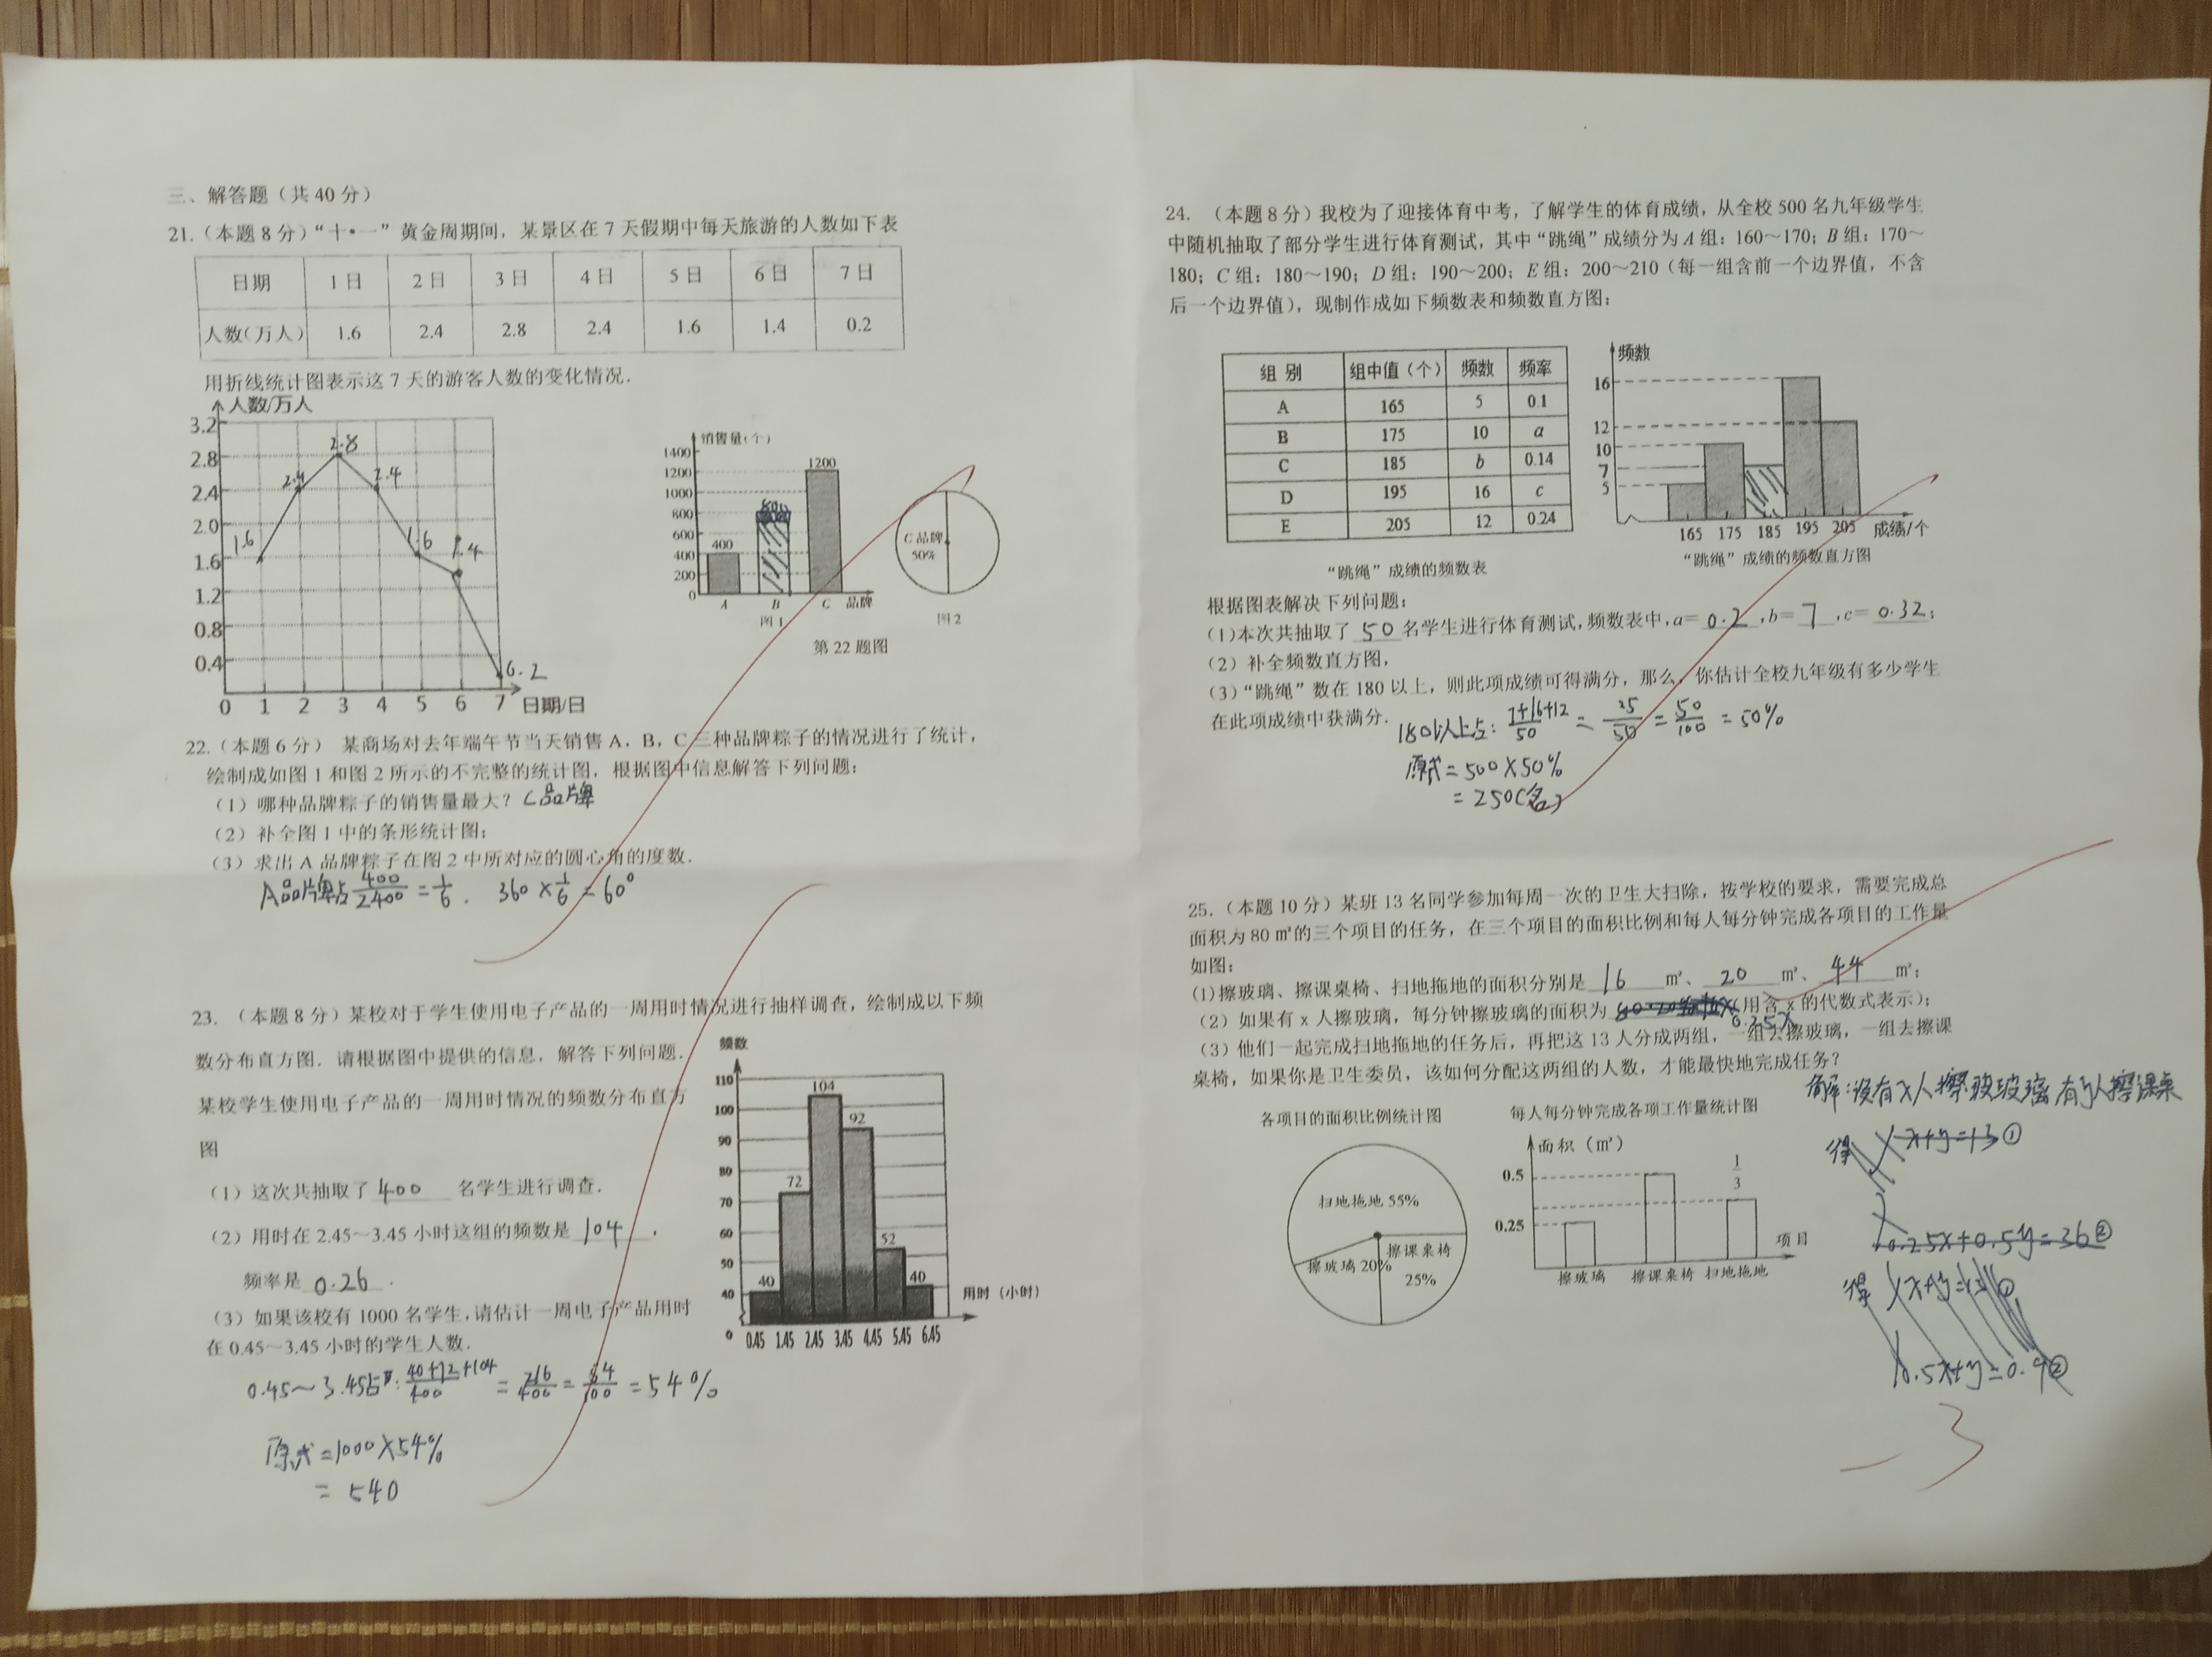 三、解答题（共 40 分）
21.（本题 8 分）“十•一”黄金周期间，某景区在 7 天假期中每天旅游的人数如下表
日期 1 日 2 日 3 日 4 日 5 日 6 日 7 日
人数(万人) 1.6 2.4 2.8 2.4 1.6 1.4 0.2
用折线统计图表示这 7 天的游客人数的变化情况.
人数/万人
3.2
2.8
2.4
2.0
1.6
1.2
0.8
0.4
0 1 2 3 4 5 6 7 日期/日
1.6
2.4
2.8
2.4
1.6
1.4
0.2
销售量(个)
1400
1200
1000
800
600
400
200
0
400
800
1200
A B C 品牌
图 1
C 品牌
50%
图 2
第 22 题图
22.（本题 6 分） 某商场对去年端午节当天销售 A，B，C 三种品牌粽子的情况进行了统计，
绘制成如图 1 和图 2 所示的不完整的统计图，根据图中信息解答下列问题：
（1）哪种品牌粽子的销售量最大？C品牌
（2）补全图 1 中的条形统计图；
（3）求出 A 品牌粽子在图 2 中所对应的圆心角的度数.
A品牌占 400/2400 = 1/6 . 360 × 1/6 = 60°
23. （本题 8 分）某校对于学生使用电子产品的一周用时情况进行抽样调查，绘制成以下频
数分布直方图．请根据图中提供的信息，解答下列问题．
某校学生使用电子产品的一周用时情况的频数分布直方
图
（1）这次共抽取了 400 名学生进行调查．
（2）用时在 2.45～3.45 小时这组的频数是 104 ，
频率是 0.26 .
（3）如果该校有 1000 名学生，请估计一周电子产品用时
在 0.45～3.45 小时的学生人数．
0.45～3.45占: 40+72+104/400 = 216/400 = 54/100 = 54%
原式=1000×54%
= 540
频数
110
100
90
80
70
60
50
40
0
40
72
104
92
52
40
0.45 1.45 2.45 3.45 4.45 5.45 6.45
用时（小时）
24. （本题 8 分）我校为了迎接体育中考，了解学生的体育成绩，从全校 500 名九年级学生
中随机抽取了部分学生进行体育测试，其中“跳绳”成绩分为 A 组：160～170；B 组：170～
180；C 组：180～190；D 组：190～200；E 组：200～210（每一组含前一个边界值，不含
后一个边界值），现制作成如下频数表和频数直方图：
组 别 组中值（个） 频数 频率
A 165 5 0.1
B 175 10 a
C 185 b 0.14
D 195 16 c
E 205 12 0.24
“跳绳”成绩的频数表
频数
16
12
10
7
5
165 175 185 195 205 成绩/个
“跳绳”成绩的频数直方图
根据图表解决下列问题：
（1)本次共抽取了 50 名学生进行体育测试,频数表中,a= 0.2 ,b= 7 ,c= 0.32 ;
（2）补全频数直方图，
（3）“跳绳”数在 180 以上，则此项成绩可得满分，那么，你估计全校九年级有多少学生
在此项成绩中获满分．
180以上占: 7+16+12/50 = 25/50 = 50/100 = 50%
原式=500×50%
= 250(名)
25．（本题 10 分）某班 13 名同学参加每周一次的卫生大扫除，按学校的要求，需要完成总
面积为 80 ㎡的三个项目的任务，在三个项目的面积比例和每人每分钟完成各项目的工作量
如图：
（1)擦玻璃、擦课桌椅、扫地拖地的面积分别是 16 ㎡、 20 ㎡、 44 ㎡；
（2）如果有 x 人擦玻璃，每分钟擦玻璃的面积为 0.25x (用含 x 的代数式表示)；
（3）他们一起完成扫地拖地的任务后，再把这 13 人分成两组，一组去擦玻璃，一组去擦课
桌椅，如果你是卫生委员，该如何分配这两组的人数，才能最快地完成任务？
解:设有x人擦玻璃 有y人擦课桌
得 x+y=13①
0.25x+0.5y=36②
得
各项目的面积比例统计图
扫地拖地 55%
擦玻璃 20%
擦课桌椅
25%
每人每分钟完成各项工作量统计图
面积（㎡）
0.5
0.25
1/3
擦玻璃 擦课桌椅 扫地拖地
项目
-3